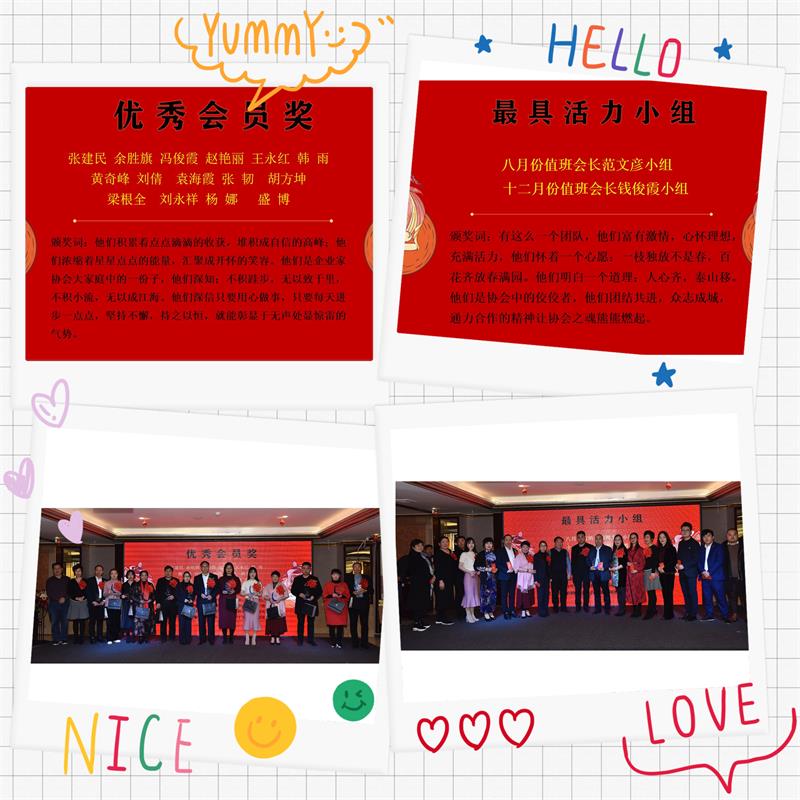 YUMMY
HELLO
优秀会员奖
张建民 余胜旗 冯俊霞 赵艳丽 王永红 韩 雨
黄奇峰 刘倩 袁海霞 张 韧 胡方坤
梁根全 刘永祥 杨 娜 盛 博
颁奖词：他们积累着点点滴滴的收获，堆积成自信的高峰；他
们浓缩着星星点点的能量，汇聚成开怀的笑容。他们是企业家
协会大家庭中的一份子，他们深知：不积跬步，无以致千里，
不积小流，无以成江海。他们深信只要用心做事，只要每天进
步一点点，坚持不懈，持之以恒，就能彰显于无声处显惊雷的
气势。
最具活力小组
八月份值班会长范文彦小组
十二月份值班会长钱俊霞小组
颁奖词：有这么一个团队，他们富有激情，心怀理想，
充满活力，他们怀着一个心愿：一枝独放不是春，百
花齐放春满园。他们明白一个道理：人心齐，泰山移。
他们是协会中的佼佼者，他们团结共进，众志成城，
通力合作的精神让协会之魂熊熊燃起。
优秀会员奖
最具活力小组
NICE
LOVE